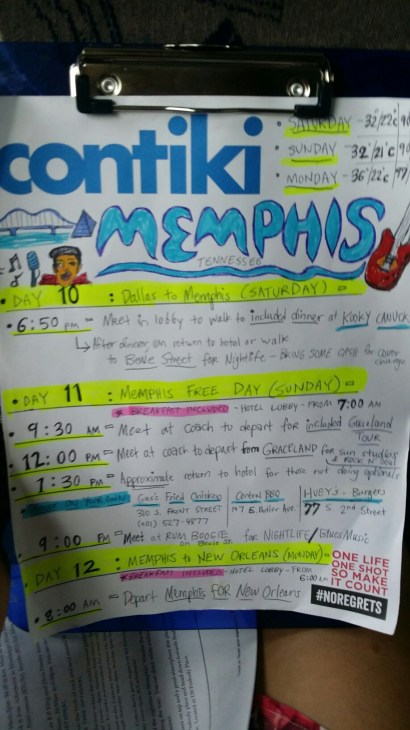 contiki
• SATURDAY - 32°/22°c
• SUNDAY - 32°/21°c
• MONDAY - 36°/22°c
MEMPHIS
TENNESSEE
• DAY 10 : Dallas to Memphis (SATURDAY)
• 6:50 pm - Meet in lobby to walk to included dinner at Kooky CANUCK
↳ After dinner return to hotel or walk
to Beale Street for Nightlife - BRING SOME CASH for cover charge
• DAY 11 : MEMPHIS FREE DAY (SUNDAY)
* BREAKFAST INCLUDED - HOTEL LOBBY - FROM 7:00 AM
• 9:30 AM - Meet at coach to depart for included Graceland TOUR
• 12:00 PM - Meet at coach to depart from GRACELAND for Sun studios & ROCK N' SOUL
• 1:30 PM - Approximate return to hotel for those not doing optionals
Gus's Fried Chicken
310 S. FRONT STREET
(901) 527-4877
Central BBQ
147 E. Butler Ave.
HUEY's - Burgers
77 S. 2nd Street
9:00 PM - Meet at RUM BOOGIE on Beale St. for NIGHTLIFE/Blues Music
DAY 12 : MEMPHIS to NEW ORLEANS (MONDAY)
* BREAKFAST INCLUDED - HOTEL LOBBY - FROM 6:00 AM
• 8:00 AM - Depart Memphis FOR New Orleans
ONE LIFE
ONE SHOT
SO MAKE
IT COUNT
#NOREGRETS